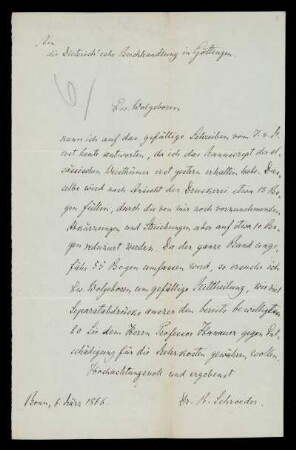 An
die Dieterich'sche Buchhandlung in Göttingen.
Ew. Wolgeboren
kann ich auf das gefällige Schreiben vom 7. v. M.
erst heute antworten, da ich das Manuscript der el-
sässischen Weisthümer erst gestern erhalten habe. Das-
selbe wird nach Ansicht der Druckerei etwa 13 Bo-
gen füllen, durch die von mir noch vorzunehmenden
Abkürzungen und Streichungen aber auf etwa 10 Bo-
gen reducirt werden. Da der ganze Band unge-
fähr 55 Bogen umfassen wird, so ersuche ich
Ew. Wolgeboren um gefällige Mittheilung, wie viel
Separatabdrücke ausser den bereits bewilligten
20 Sie dem Herrn Professor Hanauer gegen Ent-
schädigung für die Mehrkosten gewähren wollen.
Hochachtungsvoll und ergebenst
Bonn, 6. März 1866. Dr. R. Schroeder.